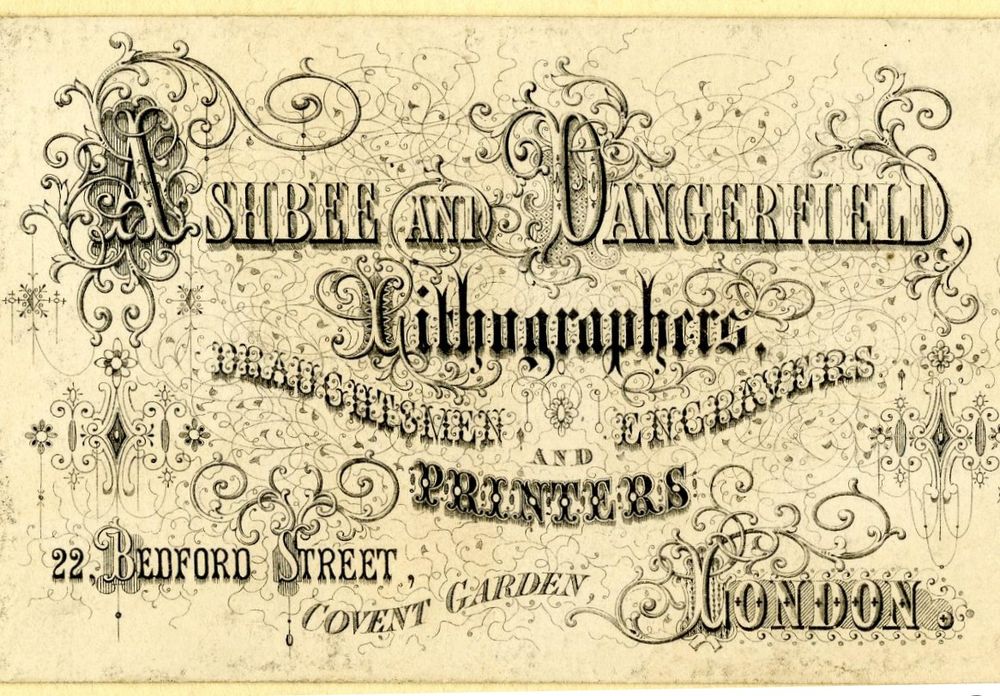 ASHBEE AND DANGERFIELD,
Lithographers.
DRAUGHTSMEN, ENGRAVERS
AND
PRINTERS
22, BEDFORD STREET,
COVENT GARDEN,
LONDON.